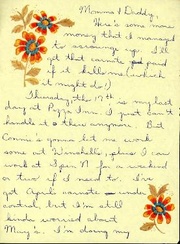 Momma & Daddy,
Here's some more
money that I managed
to scrounge up. I'll
get that carnote paid
if it kills me (which
it might do!)
Thursday, the 17th is my last
day at Pizza Inn. I just can't
handle it there anymore. But
Connie's gonna let me work
some at Winchells, plus I can
work at Span. N. for a weekend
or two if I need to. I've
got April's carnote under
control, but I'm still
kinda worried about
May's. I'm doing my